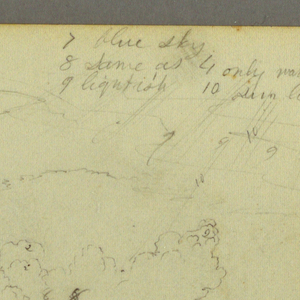 7 blue sky
8 same as 4 only
9 lightish 10
9 9 10 9
10
2
2
8